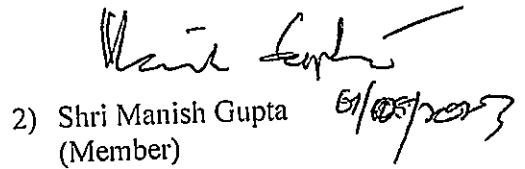 Manish Gupta
2) Shri Manish Gupta
(Member)